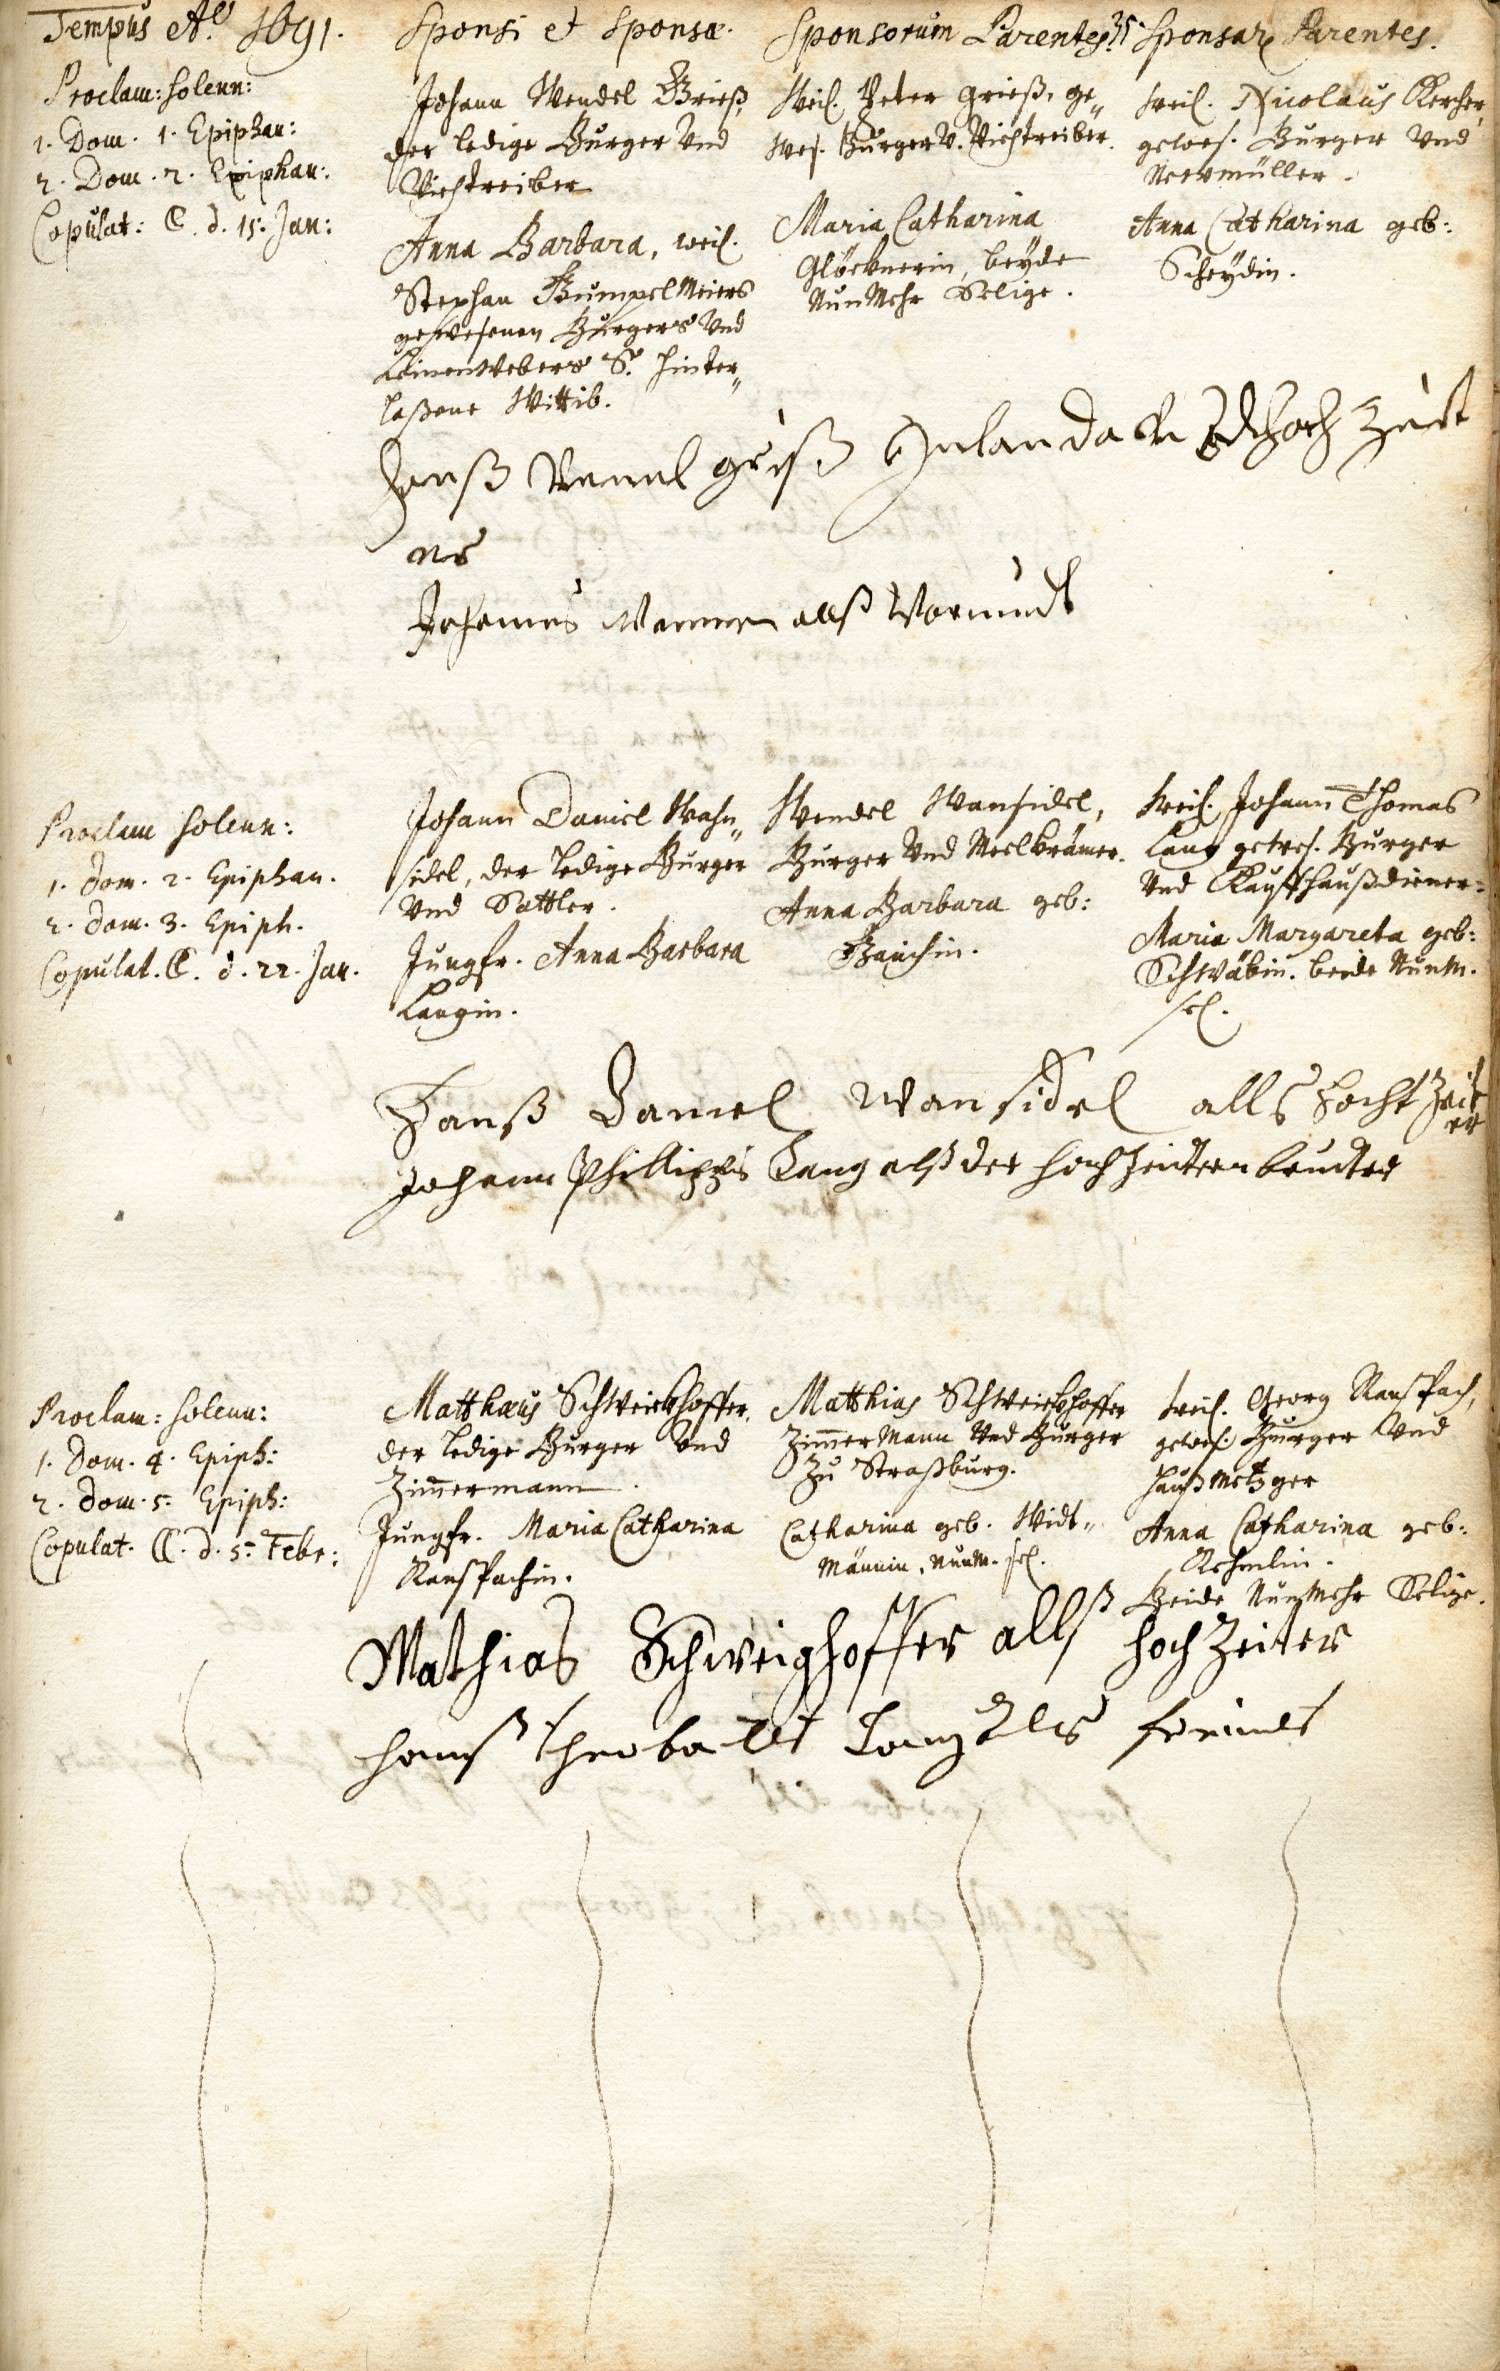 Tempus Aō. 1691.
Sponsi et Sponsæ.
Sponsorum Parentes.
35.
Sponsar. Parentes.
Proclam: solenn:
1. Dom. 1. Epiphan:
2. Dom. 2. Epiphan:
Copulat: C. d. 15. Jan:
Johann Wendel Grieß,
der ledige Burger Und
Viehtreiber
Anna Barbara, weil.
Stephan GumpelMeiers
gewesenen Burgers Und
Leinenwebers S. hinter„
laßene Wittib.
Weil. Peter Grieß, ge„
wes. Burger V. Viehtreiber.
Maria Catharina
Glöcknerin, beyde
NunMehr Selige.
weil. Nicolaus Kercher,
gewes. Burger Und
müller.
Anna Catharina geb:
Scheydin.
Hanß Wenel griß
Johannes Wanner allß Vormundt
Proclam solenn:
1. Dom. 2. Epiphan.
2. Dom. 3. Epiph.
Copulat. C. d. 22. Jan.
Johann Daniel Wahn„
sidel, der ledige Burger
Und Sattler.
Jungfr. Anna Barbara
Langin.
Wendel Wansidel,
Burger Und Meelkrämer.
Anna Barbara geb:
Bauchin.
Weil. Johann Thomas
Lang gewes. Burger
Und Kauffhaußdiener.
Maria Margareta geb:
Schwäbin. beede NunM.
sel.
Hanß Daniel Wansidel alls hochtzeit
er
Johann Phillippß Lang alß der hochzeiterin bruder
Proclam: solenn:
1. Dom. 4. Epiph:
2. Dom. 5. Epiph:
Copulat. C. d. 5. Febr:
Matthæus Schweickhoffer,
der ledige Burger Und
Zim̄ermann.
Jungfr. Maria Catharina
Ranspachin.
Matthias Schweickhoffer
Zim̄erMann Und Burger
Zu Straßburg.
Catharina geb. Widt„
männin, NunM. sel.
weil. Georg Ranspach,
gewes. Burger Und
Haußmetzger
Anna Catharina geb:
Rehmlin.
Beide NunMehr Selige.
Mathias Schweighoffer allß hochzeiter
hanß theobaldt Lang Als freindt